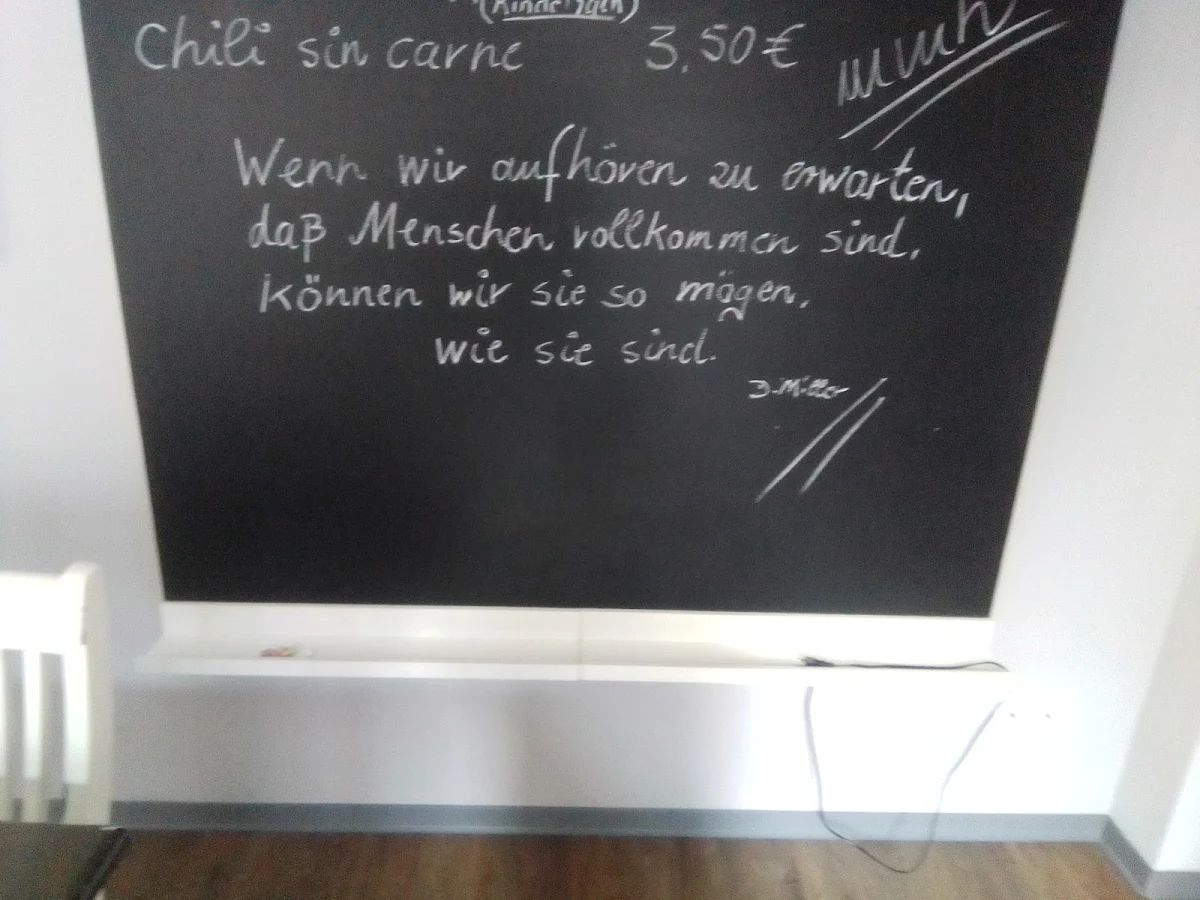 Chili sin carne 3,50€
mmmh
Wenn wir aufhören zu erwarten,
daß Menschen vollkommen sind,
können wir sie so mögen,
wie sie sind.
D. Miller